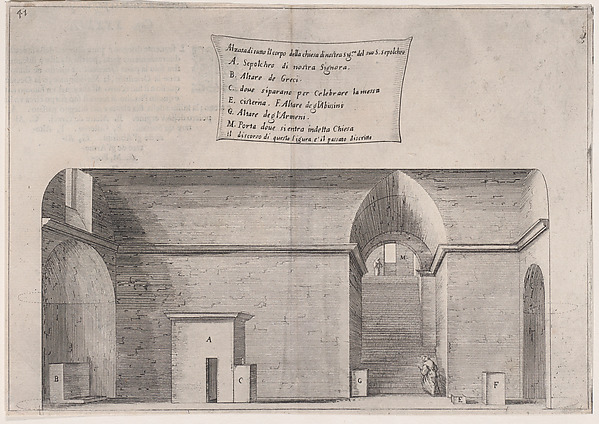 41
Alzata di tutto il corpo della chiesa di nostra Sig.ra del suo S. sepolchro
A. Sepolchro di nostra Signora.
B. Altare de Greci.
C. doue siparano per Celebrare la messa
E. cisterna. F. Altare degl'Abissini
G. Altare degl'Armeni.
M. Porta doue sientra indetta Chiesa
il discorso di questa figura e il passato discritto
M
A
B
C
G
E
F